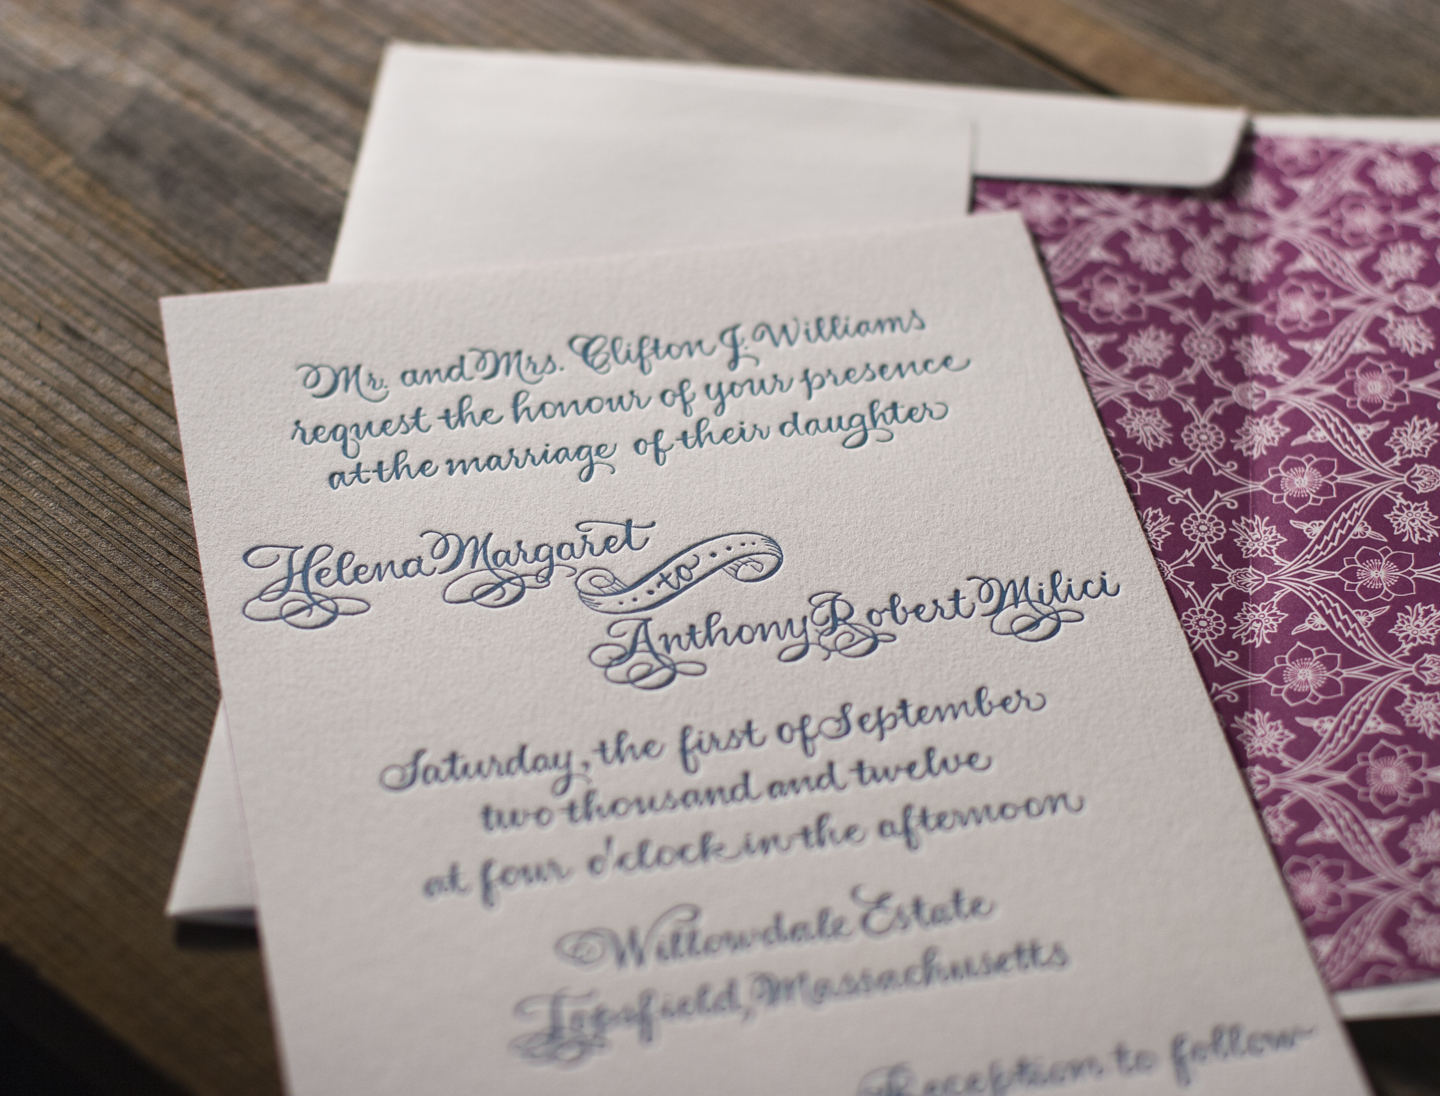 Mr. and Mrs. Clifton J. Williams
request the honour of your presence
at the marriage of their daughter
Helena Margaret
to
Anthony Robert Milici
Saturday, the first of September
two thousand and twelve
at four o'clock in the afternoon
Willowdale Estate
Topsfield, Massachusetts
Reception to follow